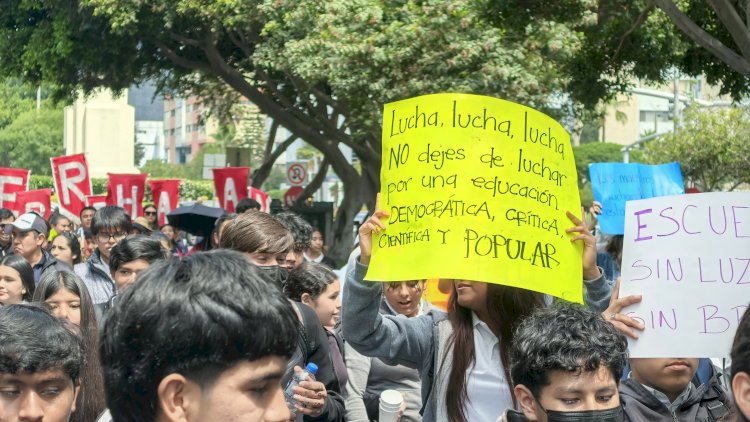 Lucha, lucha, lucha,
NO dejes de luchar
por una educación
DEMOCRÁTICA, CRÍTICA,
CIENTÍFICA Y POPULAR
ESCUE
SIN LUZ
SIN
R
R
R